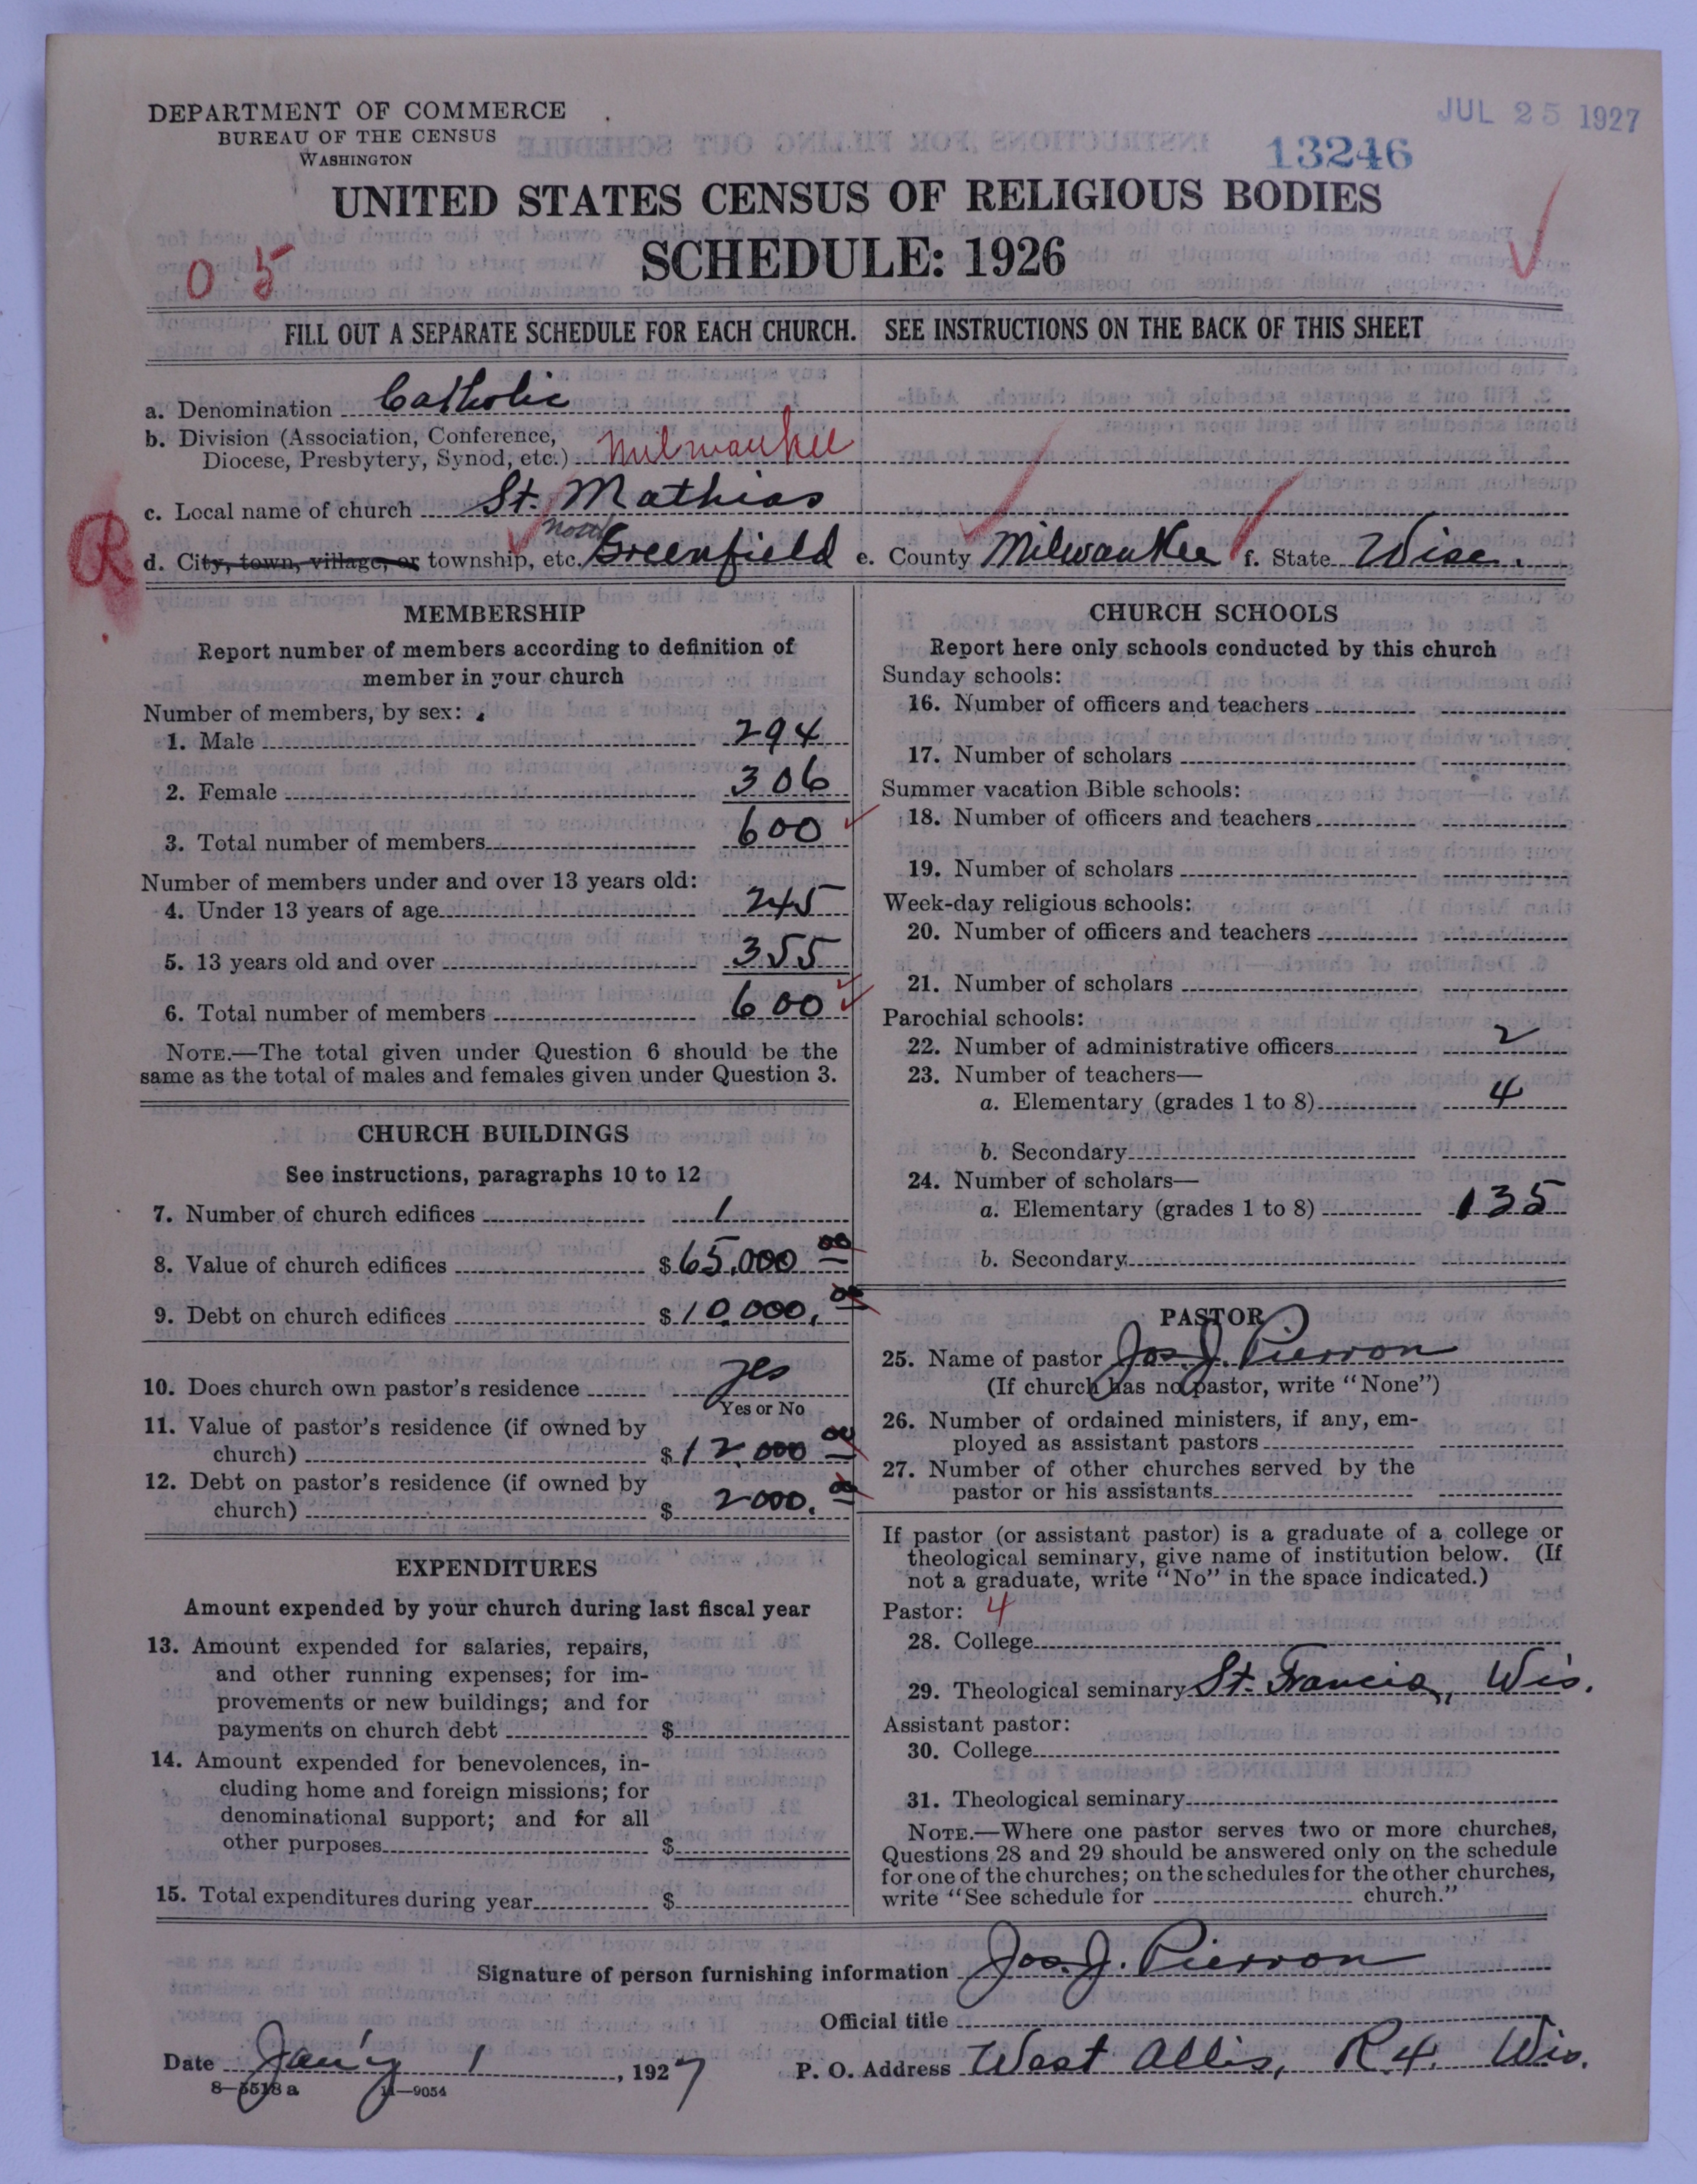 DEPARTMENT OF COMMERCE
BUREAU OF THE CENSUS
WASHINGTON
JUL 25 1927
13246
UNITED STATES CENSUS OF RELIGIOUS BODIES
SCHEDULE: 1926
0 5
FILL OUT A SEPARATE SCHEDULE FOR EACH CHURCH. SEE INSTRUCTIONS ON THE BACK OF THIS SHEET
a. Denomination Catholic
b. Division (Association, Conference,
Diocese, Presbytery, Synod, etc.) Milwaukee
c. Local name of church St. Mathias
R
d. City, town, village, or township, etc. Greenfield e. County Milwaukee f. State Wisc.
MEMBERSHIP
Report number of members according to definition of
member in your church
Number of members, by sex:
1. Male 294
2. Female 306
3. Total number of members 600
Number of members under and over 13 years old:
4. Under 13 years of age 245
5. 13 years old and over 355
6. Total number of members 600
NOTE.—The total given under Question 6 should be the
same as the total of males and females given under Question 3.
CHURCH BUILDINGS
See instructions, paragraphs 10 to 12
7. Number of church edifices 1
8. Value of church edifices $65,000 00
9. Debt on church edifices $10,000, 00
10. Does church own pastor's residence yes
Yes or No
11. Value of pastor's residence (if owned by
church) $12,000 00
12. Debt on pastor's residence (if owned by
church) $2000. 00
EXPENDITURES
Amount expended by your church during last fiscal year
13. Amount expended for salaries, repairs,
and other running expenses; for im-
provements or new buildings; and for
payments on church debt $
14. Amount expended for benevolences, in-
cluding home and foreign missions; for
denominational support; and for all
other purposes $
15. Total expenditures during year $
CHURCH SCHOOLS
Report here only schools conducted by this church
Sunday schools:
16. Number of officers and teachers
17. Number of scholars
Summer vacation Bible schools:
18. Number of officers and teachers
19. Number of scholars
Week-day religious schools:
20. Number of officers and teachers
21. Number of scholars
Parochial schools:
22. Number of administrative officers 2
23. Number of teachers—
a. Elementary (grades 1 to 8) 4
b. Secondary
24. Number of scholars—
a. Elementary (grades 1 to 8) 135
b. Secondary
PASTOR
25. Name of pastor Jos. J. Pierron
(If church has no pastor, write "None")
26. Number of ordained ministers, if any, em-
ployed as assistant pastors
27. Number of other churches served by the
pastor or his assistants
If pastor (or assistant pastor) is a graduate of a college or
theological seminary, give name of institution below. (If
not a graduate, write "No" in the space indicated.)
Pastor: 4
28. College
29. Theological seminary St. Francis, Wis.
Assistant pastor:
30. College
31. Theological seminary
NOTE.—Where one pastor serves two or more churches,
Questions 28 and 29 should be answered only on the schedule
for one of the churches; on the schedules for the other churches,
write "See schedule for church."
Signature of person furnishing information Jos. J. Pierron
Official title
Date Jan'y 1, 1927 P. O. Address West Allis, R 4. Wis.
8—5518 a 11—9054